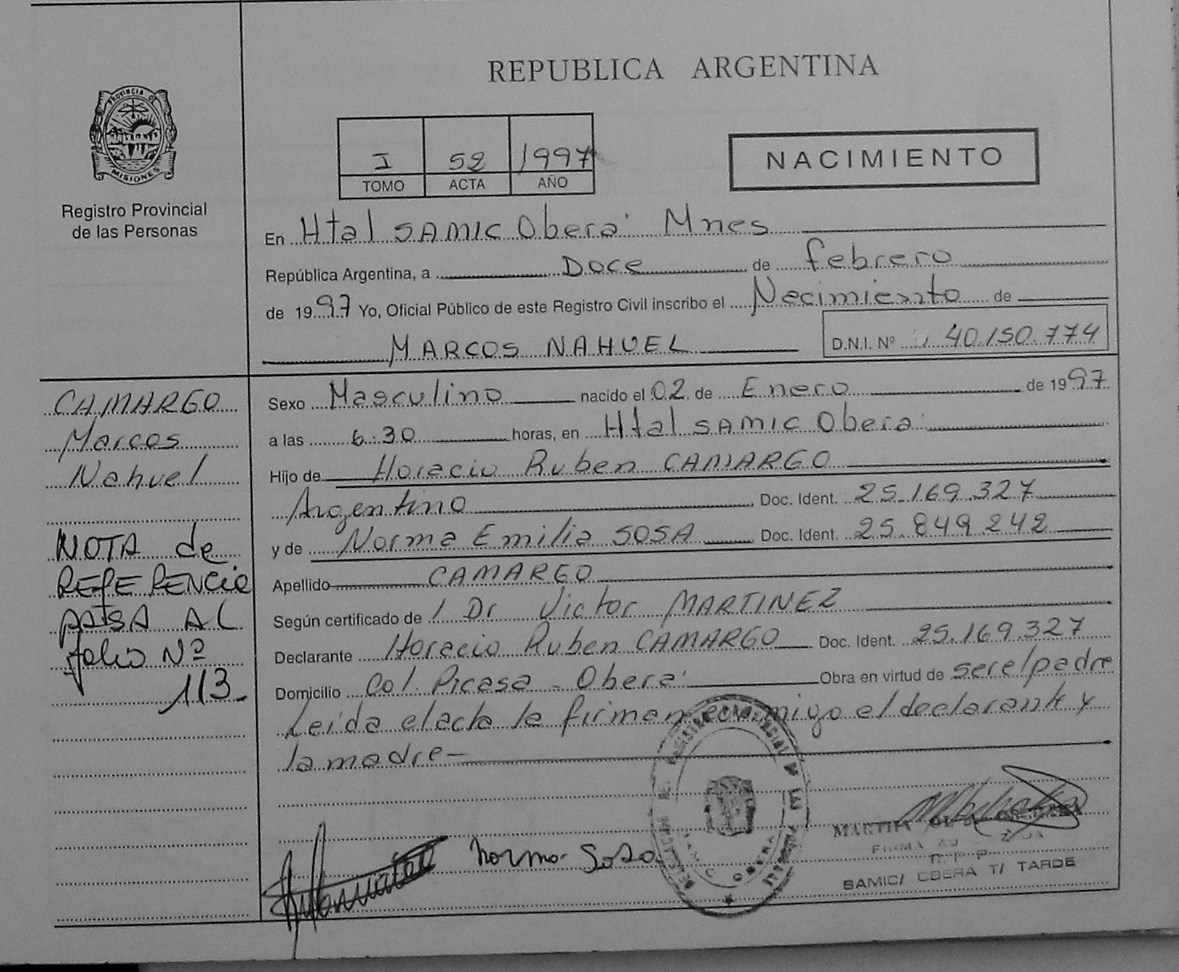 REPUBLICA ARGENTINA
PROVINCIA DE
MISIONES
Registro Provincial
de las Personas
I 52 1997
TOMO ACTA AÑO
NACIMIENTO
En Htal SAMIC Oberá Mnes
República Argentina, a Doce de febrero
de 1997 Yo, Oficial Público de este Registro Civil inscribo el Nacimiento de
MARCOS NAHUEL D.N.I. Nº 40.150.774
CAMARGO
Marcos
Nahuel
NOTA de
REFERENCIA
PASA AL
folio Nº
113
Sexo Masculino nacido el 02 de Enero de 1997
a las 6:30 horas, en Htal SAMIC Oberá
Hijo de Horacio Ruben CAMARGO
Argentino Doc. Ident. 25.169.327
y de Norma Emilia SOSA Doc. Ident. 25.849.242
Apellido CAMARGO
Según certificado de Dr Victor MARTINEZ
Declarante Horacio Ruben CAMARGO Doc. Ident. 25.169.327
Domicilio Col. Picasa - Oberá Obra en virtud de ser el padre
Leida el acta la firman conmigo el declarante y
la madre
Norma Sosa
MARTHA
R. P. P.
SAMIC/ OBERA T/ TARDE